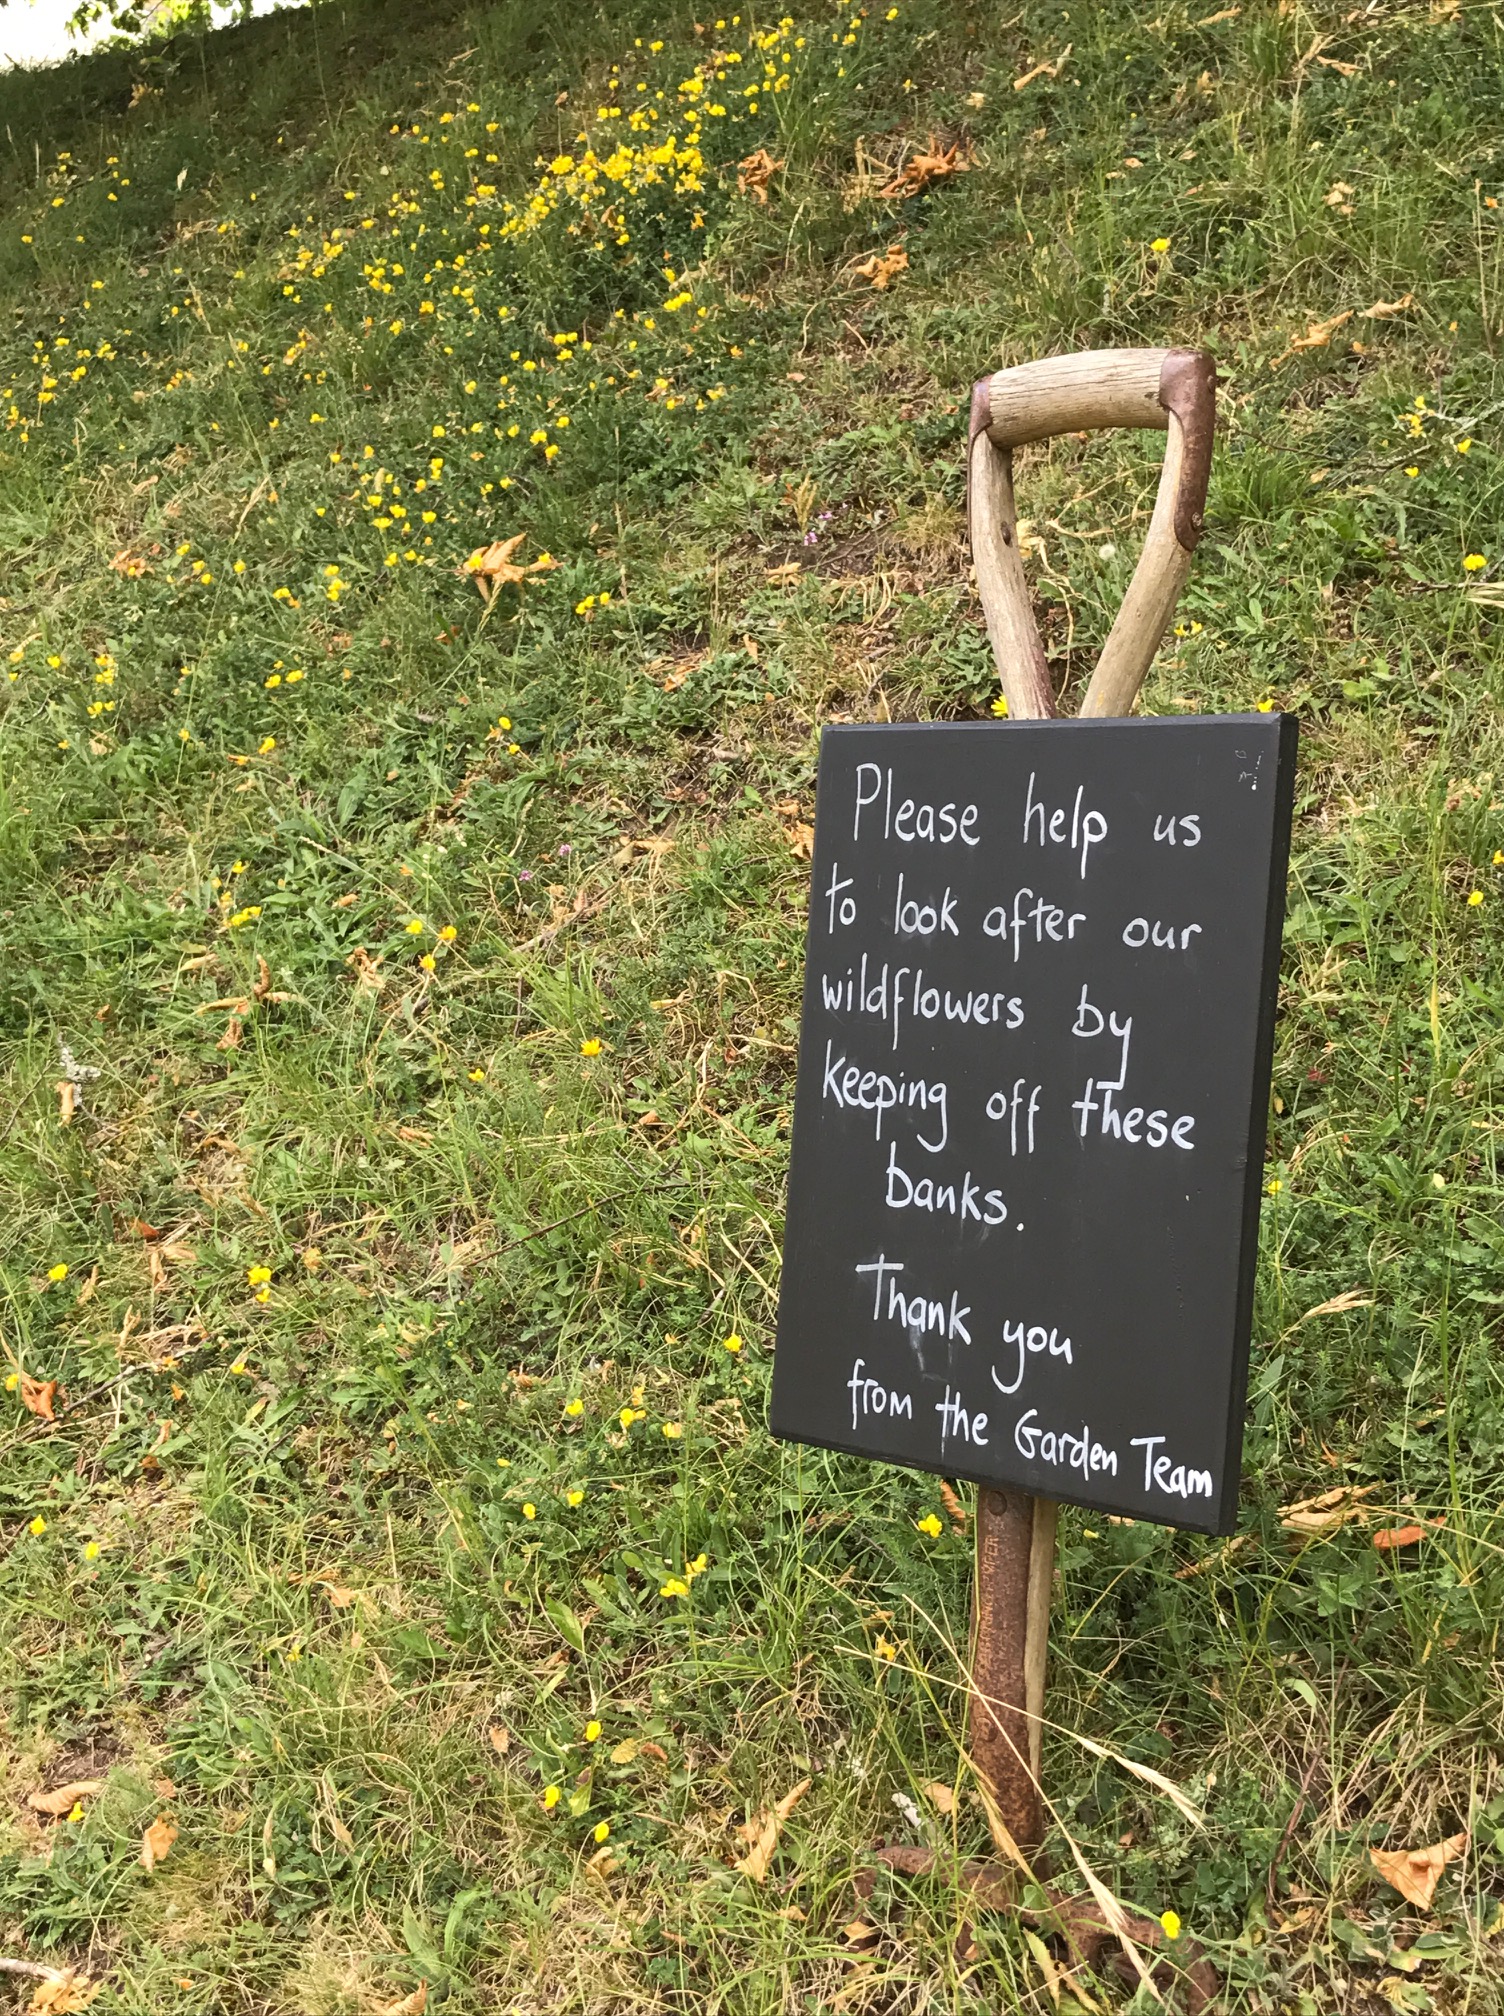 Please help us
to look after our
wildflowers by
keeping off these
banks.
Thank you
from the Garden Team